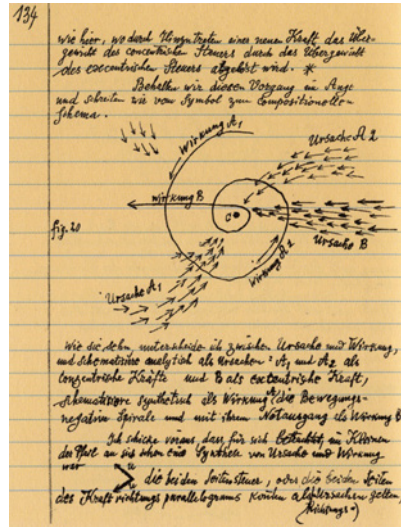 134
wie hier, wo durch Hinzutreten einer neuen Kraft das Über-
gewicht des concentrischen Steuers durch das Übergewicht
des excentrischen Steuers abgelöst wird. *
Behalten wir diesen Vorgang im Auge
und schreiten wir vom Symbol zum compositionellen
Schema.
Wirkung A1
Ursache A 2
Wirkung B
C
fig. 20
Ursache B
Wirkung A 2
Ursache A1
Wie sie sehn, unterscheide ich zwischen Ursache und Wirkung,
und schematisiere analytisch als Ursachen: A1 und A2 als
conzentrische Kräfte und B als excentrische Kraft,
schematisiere synthetisch als Wirkung A die Bewegungs-
negativ Spirale und mit ihrem Notausgang als Wirkung B
Ich schicke voraus, dass für sich betrachtet, im Kleinen
der Pfeil an sich schon eine Synthese von Ursache und Wirkung
war
u
u
die beiden Seitensteuer, oder die beiden Seiten
des Kraftrichtungsparallelograms können als Ursachen gelten,
(Richtungs-)